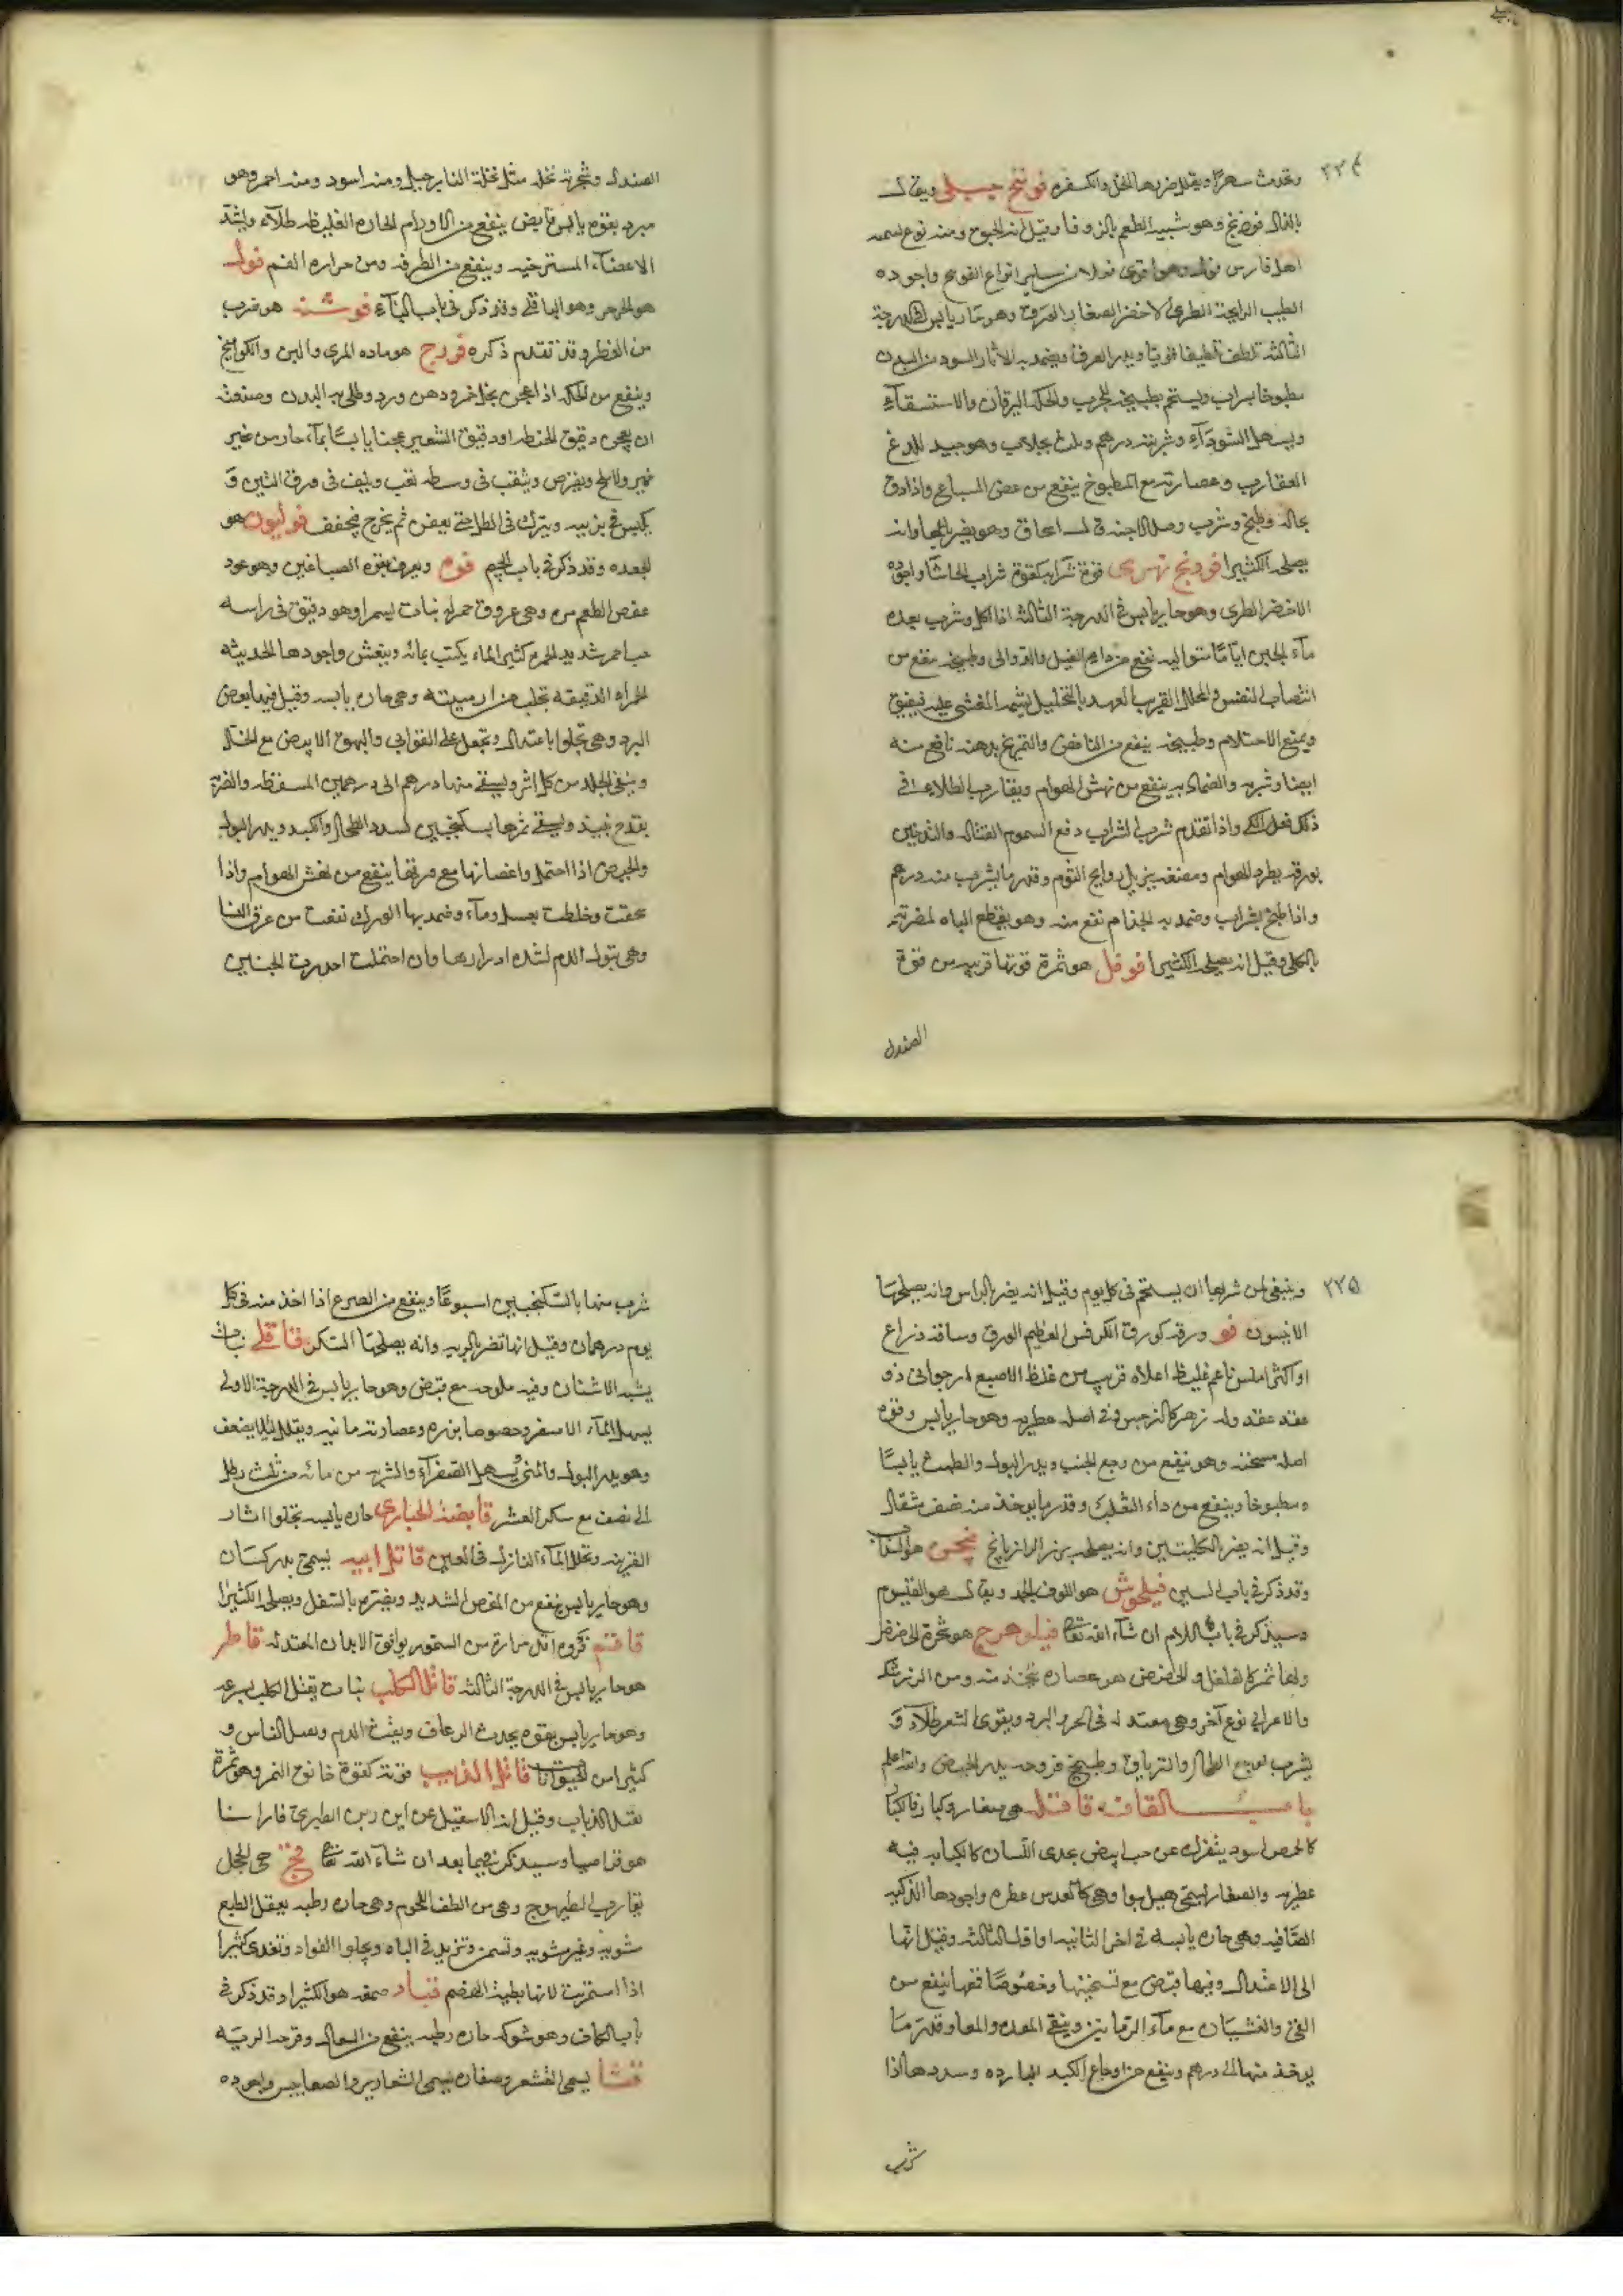 ٢٢٤
وتحدث سهرا ويقلل ضررها الخل والكسفره فوتنج جبلي ويقال
فوذنج وهو شبيه الطعم بالزوفا وقيل انه الحبق ومنه نوع
اهل فارس وهو اقوى فعلا من ساير انواع الفوتنج واجوده
الطيب الرايحة الطرى الاخضر الصغار الورق وهو حار يابس فى الدرجة
الثالثة تلطف تلطيفا قويا ويدر العرق ويضمد به الاثار السود من البدن
مطبوخا بشراب ويستحم بطبيخه للجرب والحكه اليرقان والاستسقاء
ويسهل السوداء وشربته درهم وثلث بجلاب وهو جيد للدغ
العقارب وعصارته مع المطبوخ ينفع من عض السباع واذا دق
بحاله وطبخ وشرب وصلا الاجنة قال اسحاق وهو يضر بالمعا وانه
يصلحه الكثيرا فودنج نهرى قوة شرابه كقوة شراب الحاشا واجوده
الاخضر الطرى وهو حار يابس فى الدرجة الثالثة اذا اكل وشرب بعده
ماء الجبن اياما متواليه نفع من داء الفيل والدوالى وطبيخه ينفع من
انتصاب النفس والخلل القريب العهد بالتخليل يشمه المغشى عليه فيفيق
ويمنع الاحتلام وطبيخه ينفع من النافض والتمريخ بدهنه نافع منه
ايضا وشربه والضماد به ينفع من نهش الهوام ويقارب الطلاء به فى
ذلك فعل الكى واذا تقدم شربه الشراب دفع السموم القتاله والتدخين
بورقه يطرد الهوام ومضغه يزيل روايح الثوم وقدر ما يشرب منه درهم
واذا طبخ بشراب وضمد به الجذام نفع منه وهو يقطع الباه لمضرته
بالكلى وقيل انه يصلحه الكثيرا فوفل هو ثمرة قوتها قريبه من قوة
الصندل
الصندل وشجرته نخله مثل نخلة النارجيل ومنه اسود ومنه احمر وهو
مبرد بقوه يابس قابض ينفع من الاورام الحاره الغليظه طلاء ويشد
الاعضاء المسترخيه وينفع من الطرفه ومن حراره الفم فول
هو الجرجر وهو الباقلى وقد ذكر فى باب الباء فوشنه هو ضرب
من الفطر وقد تقدم ذكره فودج هو ماده المرى والبن والكوامخ
وينفع من الحكه اذا عجن بخل خمر ودهن ورد وطلى به البدن وصنعته
ان يعجن دقيق الحنطه او دقيق الشعير عجنا يابسا بماء حار من غير
خمير ولا ملح ويقرص ويثقب فى وسطه ثقب ويلف فى ورق التين و
يكبس فى بزبيه ويترك فى الظل حتى يعفن ثم يخرج فيجفف فوليون هو
الجعده وقد ذكر فى باب الجيم فوه ويعرف بفوه الصباغين وهو عود
عفص الطعم مر وهى عروق حمر له نبات يسمر اوهو دقيق فى راسه
حب احمر شديد الحمره كثير الماء يكتب بمائه وينقش واجودها الحديثه
الحمراء الدقيقه تجلب من ارمينيه وهى حاره يابسه وقيل فيها بعض
البرد وهى تجلوا باعتدال وتجعل على القوابى والبهق الابيض مع الخل
وينقى الجلد من كل اثر ويسقى منها درهم الى درهمين للسقطه والضربة
بقدح نبيذ ويسقى ثمرها بسكنجبين لسدد الطحال والكبد ويدر البول
والحيض اذا احتمل واغصانها مع ورقها ينفع من نهش الهوام واذا
سحقت وخلطت بعسل وماء وضمد بها الورك نفعت من عرق النسا
وهى تبول الدم لشده ادرارها وان احتملت احدرت الجنين
٢٢٥
وينبغى لمن شربها ان يستحم فى كل يوم وقيل انه يضر بالراس وانه يصلحها
الانيسون فو ورقه كورق الكرفس العظيم الورق وساقه ذراع
او اكثر املس ناعم غليظ اعلاه قريب من غلظ الاصبع ارجوانى ذو
عقد عقد وله زهر كالنرجس وفى اصله عطريه وهو حار يابس وقوه
اصله مسخنه وهو ينفع من وجع الجنب ويدر البول والطمث يابسا
ومطبوخا وينفع من داء الثعلب وقدر ما يوخذ منه نصف مثقال
وقيل انه يضر بالكليتين وانه يصلحه بزر الرازيانج فيجن هو السذاب
وقد ذكر فى باب السين فيلجوش هو اللوف الجعد ويقال هو الفنيوم
وسيذكر فى باب اللام ان شاء الله تعالى فيلزهرج هو شجرة الحضض
ولها ثمر كالفلفل والحضض هو عصاره يتخذ منه ومن الزرشك
والاعرابى نوع آخر وهى معتدله فى الحر والبرد ويقوى الشعر طلاء و
يشرب لوجع الطحال والترياق وطبيخ فروحه يدر الحيض والله اعلم
باب القاف قاقله هى صغار وكبار فالكبا
كالحمص اسود ينفرك عن حب ابيض يحذى اللسان كالكبابه فيه
عطريه والصغار يسمى هيل بوا وهى كالعدس عطره واجودها الذكيه
الصافيه وهى حاره يابسه فى اخر الثانيه او اول الثالثه وقيل انها
الى الاعتدال وفيها قبض مع تسخينها وخصوصا قمعها ينفع من
القئ والغثيان مع ماء الرمانين وينقى المعده والمعا وقدر ما
يوخذ منها الى درهم وينفع من اوجاع الكبد البارده وسددها اذا
شرب
شرب منها بالسكنجبين اسبوعا وينفع من الصرع اذا اخذ منه فى كل
يوم درهمان وقيل انها تضر بالريه وانه يصلحها السكر قاقلى نبات
يشبه الاشنان وفيه ملوحه مع قبض وهو حار يابس فى الدرجة الاولى
يسهل الماء الاصفر وخصوصا بزره وعصارته مانيه ويقلل لئلا يضعف
وهو يدر البول والمنى يسهل الصفراء والشربه من مائه من ثلث رطل
الى نصف مع سكر العشر قابضة الحبارى حاره يابسه تجلوا اثار
القرنيه وتحلل الماء النازل فى العين قاتل ابيه يسمى
وهو حار يابس ينفع من المغص الشديد ويضر بالسفل ويصلحه الكثيرا
قاقم فروه اقل حراره من السمور يوافق الابدان المعتدله قاطر
هو حار يابس فى الدرجة الثالثه قاتل الكلب نبات يقتل الكلب بسرعه
وهو حار يابس بقوه يحدث الرعاف وينفث الدم ويقتل الناس و
كثيرا من الحيوانات قاتل الذيب قوته كقوة خانق النمر وهو ثمرة
تقتل الذياب وقيل انه الاسقيل عن ابن ربن الطبرى قاراسنا
هو قراصيا وسيذكر فيما بعد ان شاء الله تعالى قبج هى الحجل
يقارب الطيهوج وهى من الطف اللحوم وهى حاره رطبه يعقل الطبع
مشويه وغير مشويه وتسمن وتزيد فى الباه ويجلوا الفواد وتغذى كثيرا
اذا استمريت لانها بطيئة الهضم قتاد صمغه هو الكثيرا وقد ذكر فى
باب الكاف وهو شوك حاره رطبه ينفع من السعال وقرحة الريه
قثا يسمى القشعر وصغاره يسمى الشعارير والضغابيس واجوده